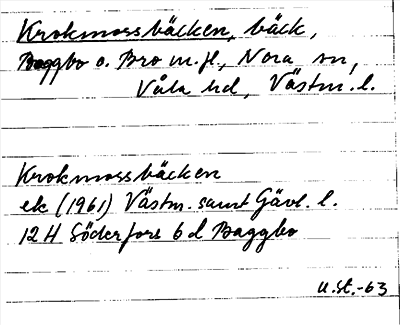 Krokmossbäcken, bäck,
Baggbo o. Bro m.fl., Nora sn,
Våla hd, Västm. l.
Krokmossbäcken
ek (1961) Västm. samt Gävl. l.
12H Söderfors 6d Baggbo
u.st.-63